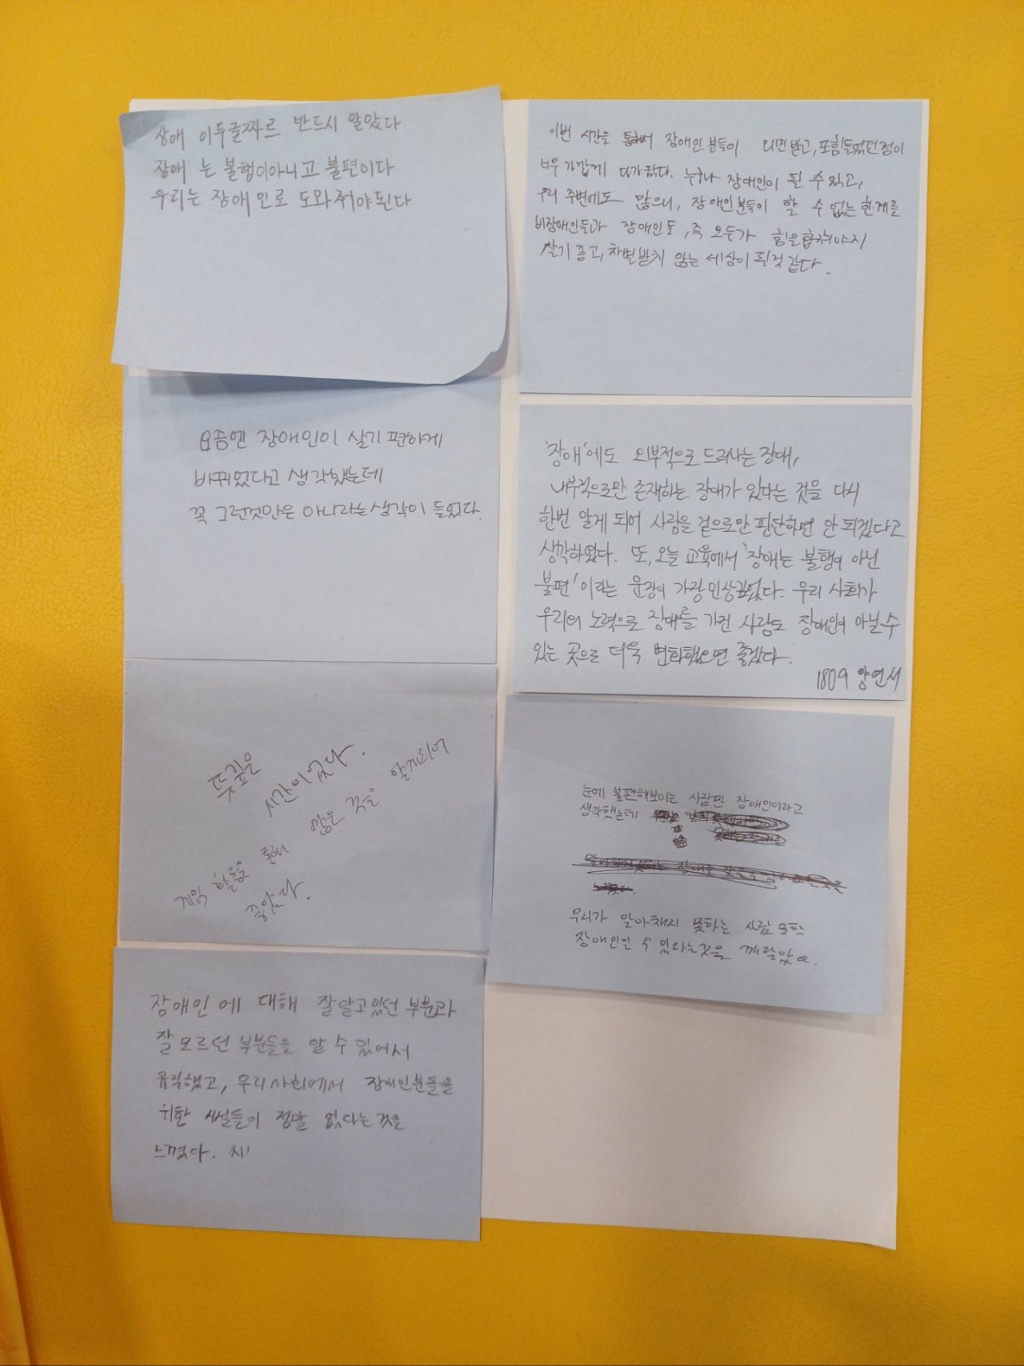 장애 이두글짜르 반드시 알았다
장애 는 불행이아니고 불편이다
우리는 장애인로 도와줘야된다
이번 시간을 통해서 장애인 분들이 외면 받고, 힘들었던점이
너무 가깝게 다가왔다. 누구나 장애인이 될 수 있고,
우리 주변에도 많으니, 장애인분들이 할 수 없는 한계를
비장애인들과 장애인 등, 즉 모두가 힘을합쳐야지
살기 좋고, 차별받지 않는 세상이 될것 같다.
요즘엔 장애인이 살기 편하게
바뀌었다고 생각했는데
꼭 그런것만은 아니라는생각이 들었다.
'장애'에도 외부적으로 드러나는 장애,
내부적으로만 존재하는 장애가 있다는 것을 다시
한번 알게 되어 사람을 겉으로만 판단하면 안 되겠다고
생각하였다. 또, 오늘 교육에서 '장애는 불행이 아닌
불편'이라는 문장이 가장인상깊었다. 우리 사회가
우리의 노력으로 장애를 가진 사람도 장애인이 아닐수
있는 곳으로 더욱 변화했으면 좋겠다.
1809 양연서
뜻깊은
시간이었다.
체익 활동을 통해 많은 것을 알게되어
좋았다.
눈에 불편해보이는 사람만 장애인이라고
생각했는데
우리가 알아채지 못하는 사람 또한
장애인일 수 있다는것을 깨달았다.
장애인 에 대해 잘알고있던 부분과
잘 모르던 부분들을 알 수 있어서
유익했고, 우리사회에서 장애인분들을
위한 시설들이 정말 없다는 것을
느꼈다.